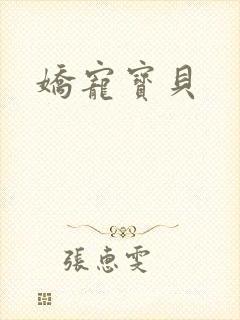 嬌寵寶貝
張惠雯